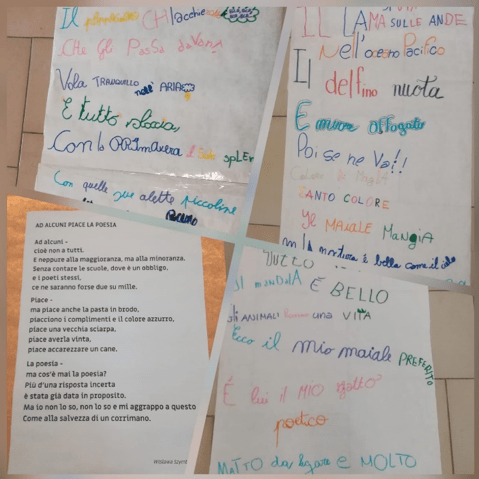 Il chiacchie
CHe gli PaSSa davanti
Vola TRANQUILLO nell' ARIA
E tutto sbaciа
Con la PRIMAVERA il Sole SPLEN
Con quelle sue alette piccoline
IL LAMA SULLE ANDE
Nell'oceano Pacifico
Il delfino nuota
E muore affogato
Poi se ne Va!!
TANTO COLORE
Il MAIALE MaNGiA
ma la montura è bella come il
AD ALCUNI PIACE LA POESIA
Ad alcuni -
cioè non a tutti.
E neppure alla maggioranza, ma alla minoranza.
Senza contare le scuole, dove è un obbligo,
e i poeti stessi,
ce ne saranno forse due su mille.
Piace -
ma piace anche la pasta in brodo,
piacciono i complimenti e il colore azzurro,
piace una vecchia sciarpa,
piace averla vinta,
piace accarezzare un cane.
La poesia -
ma cos'è mai la poesia?
Più d'una risposta incerta
è stata già data in proposito.
Ma io non lo so, non lo so e mi aggrappo a questo
Come alla salvezza di un corrimano.
TUTTO
Il MONDO È BELLO
Gli ANIMALI una VITA
Ecco il mio maiale PREFERITO
È lui il MIO gatto
poetico
MATTO da legare e MOLTO